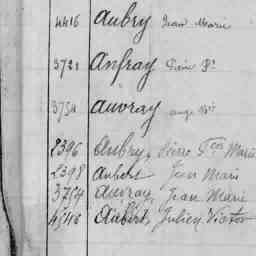 4416 Aubry Jean Marie
3721 Anfray
3754 Auvray
2396 Aubry, Pierre Fçois Marie
2398 Aubert Jean Marie
3754 Auvray, Jean Marie
Aubert, Julien Victor